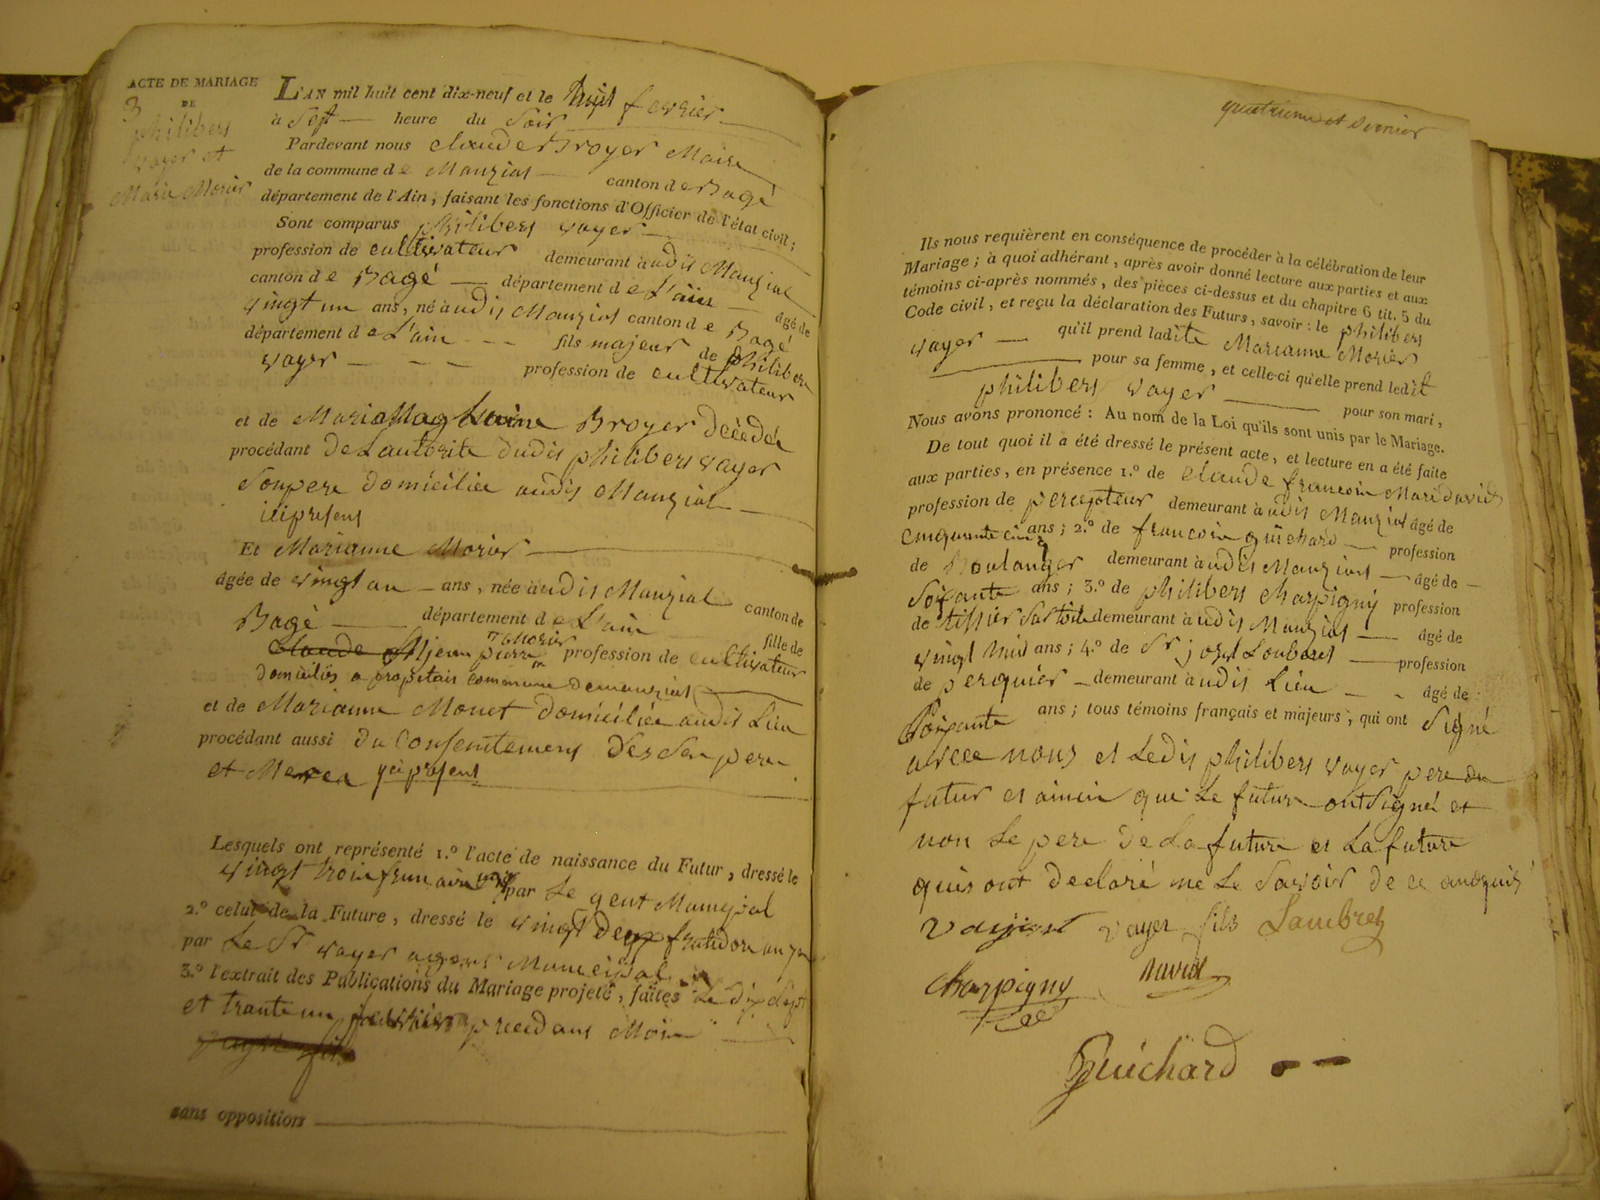 ACTE DE MARIAGE
DE
3
philibers
vayer et
Marie Morier
L'AN mil huit cent dix-neuf et le huit fevrier
à Sept heure du Soir
Pardevant nous claude Broyer Maire
de la commune de Manzias canton de Bagé
département de l'Ain; faisant les fonctions d'Officier de l'état civil;
Sont comparus philibers vayer
profession de cultivateur demeurant audis Manzias
canton de Bagé département de L'ain âgé de
vingt un ans, né audis Manzias canton de Bagé
département de L'ain fils majeur de philibers
vayer profession de cultivateur
et de Maria Broyer décédée
procédant de Lautorite dudis philibers vayer
Son pere domiciliée audis Manzias
icipresens
Et Marianne Morier
âgée de vingt an ans, née audis Manzias canton de
Bagé département de L'ain fille de
Claude jean pierre morier profession de cultivateur
domiciliés a commune demanzias
et de Marianne Monet domiciliée audis Lieu
procédant aussi du Consentemens des Sen pere
et Merea ycipresens
Lesquels ont représenté 1.º l'acte de naissance du Futur, dressé le
vingt trois par Le
2.º celui de la Future, dressé le vingt deux
par Le Sr vayer agens Municipal
3.º l'extrait des Publications du Mariage projeté, faites Le dix Sept
et trante un precedans Mois
sans opposition
quatrieme et dernier
Ils nous requièrent en conséquence de procéder à la célébration de leur
Mariage; à quoi adhérant, après avoir donné lecture aux parties et aux
témoins ci-après nommés, des pièces ci-dessus et du chapitre 6 tit. 5 du
Code civil, et reçu la déclaration des Futurs, savoir: le philibers
vayer qu'il prend ladite Marianne Morier
pour sa femme, et celle-ci qu'elle prend ledit
philibers vayer pour son mari,
Nous avons prononcé: Au nom de la Loi qu'ils sont unis par le Mariage.
De tout quoi il a été dressé le présent acte, et lecture en a été faite
aux parties, en présence 1.º de claude francois Marie david
profession de percepteur demeurant audis Manzias âgé de
cinquante cinq ans; 2.º de francois guichard profession
de Boulanger demeurant audis Manzias âgé de
Soixante ans; 3.º de philibers charpigny profession
de demeurant audis Manzias âgé de
vingt huis ans; 4.º de Sr josep profession
de perquier demeurant audis Lieu âgé de
Soixante ans; tous témoins français et majeurs, qui ont Signé
avece nous et Ledis philibers vayer pere du
futur et ainsi que Le futur ont Signé et
non Le pere de La future et La future
quis ont declaré ne Le Savoir de ce anrquis
vayer fils Lambret
charpigny David
Guichard